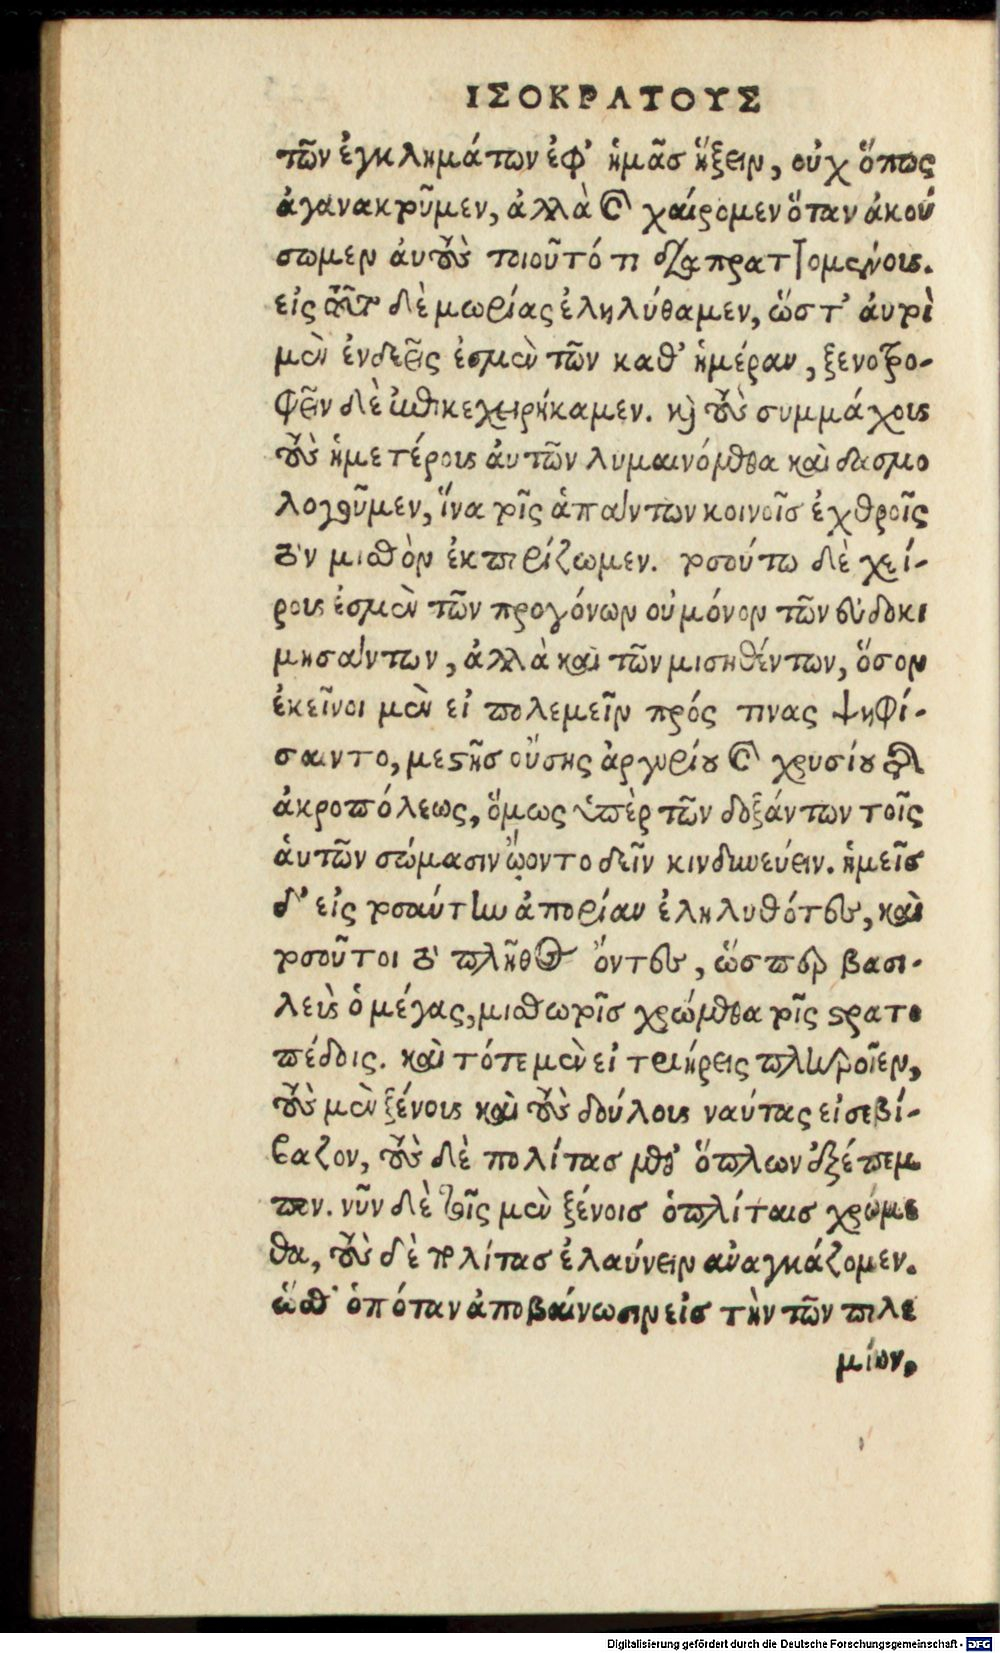 ΙΣΟΚΡΑΤΟΥΣ
τῶν ἐγκλημάτων ἐφ' ἡμᾶσ ἥξειν, οὐχ ὅπως
ἀγανακτοῦμεν, ἀλλὰ καὶ χαίρομεν ὅταν ἀκού
σωμεν ἀυτοὺς τοιοῦτό τι διαπραττομένους.
εἰς τοῦτο δὲ μωρίας ἐληλύθαμεν, ὥστ' ἀυτοὶ
μὲν ἐνδεεῖς ἐσμὲν τῶν καθ' ἡμέραν, ξενοτρο-
φεῖν δὲ ἐπικεχειρήκαμεν. καὶ τοὺς συμμάχους
τοὺς ἡμετέρους ἀυτῶν λυμαινόμεθα καὶ δασμο
λογοῦμεν, ἵνα τοῖς ἁπάντων κοινοῖσ ἐχθροῖς
τὸν μισθὸν ἐκπορίζωμεν. τοσούτω δὲ χεί-
ρους ἐσμὲν τῶν προγόνων οὐ μόνον τῶν εὐδοκι
μησάντων, ἀλλὰ καὶ τῶν μισηθέντων, ὅσον
ἐκεῖνοι μὲν εἰ πολεμεῖν πρός τινας ψηφί-
σαιντο, μεστῆσ οὔσης ἀργυρίου καὶ χρυσίου τῆς
ἀκροπόλεως, ὅμως ὑπὲρ τῶν δοξάντων τοῖς
ἁυτῶν σώμασιν ᾤοντο δεῖν κινδυνεύειν. ἡμεῖσ
δ' εἰς τοσαύτην ἀπορίαν ἐληλυθότες, καὶ
τοσοῦτοι τὸ πλῆθος ὄντες, ὥσπερ βασι-
λεὺς ὁ μέγας, μισθωτοῖσ χρώμεθα τοῖς στρατο
πέδοις. καὶ τότε μὲν εἰ τριήρεις πληροῖεν,
τοὺς μὲν ξένους καὶ τοὺς δούλους ναύτας εἰσεβί-
βαζον, τοὺς δὲ πολίτασ μεθ' ὅπλων ἐξέπεμ
πον. νῦν δὲ τοῖς μὲν ξένοισ ὁπλίταισ χρώμε
θα, τοὺς δὲ πολίτασ ἐλαύνειν ἀναγκάζομεν.
ὥσθ' ὁπόταν ἀποβαίνωσιν εἰσ τὴν τῶν πολε
μίων,
Digitalisierung gefördert durch die Deutsche Forschungsgemeinschaft - DFG